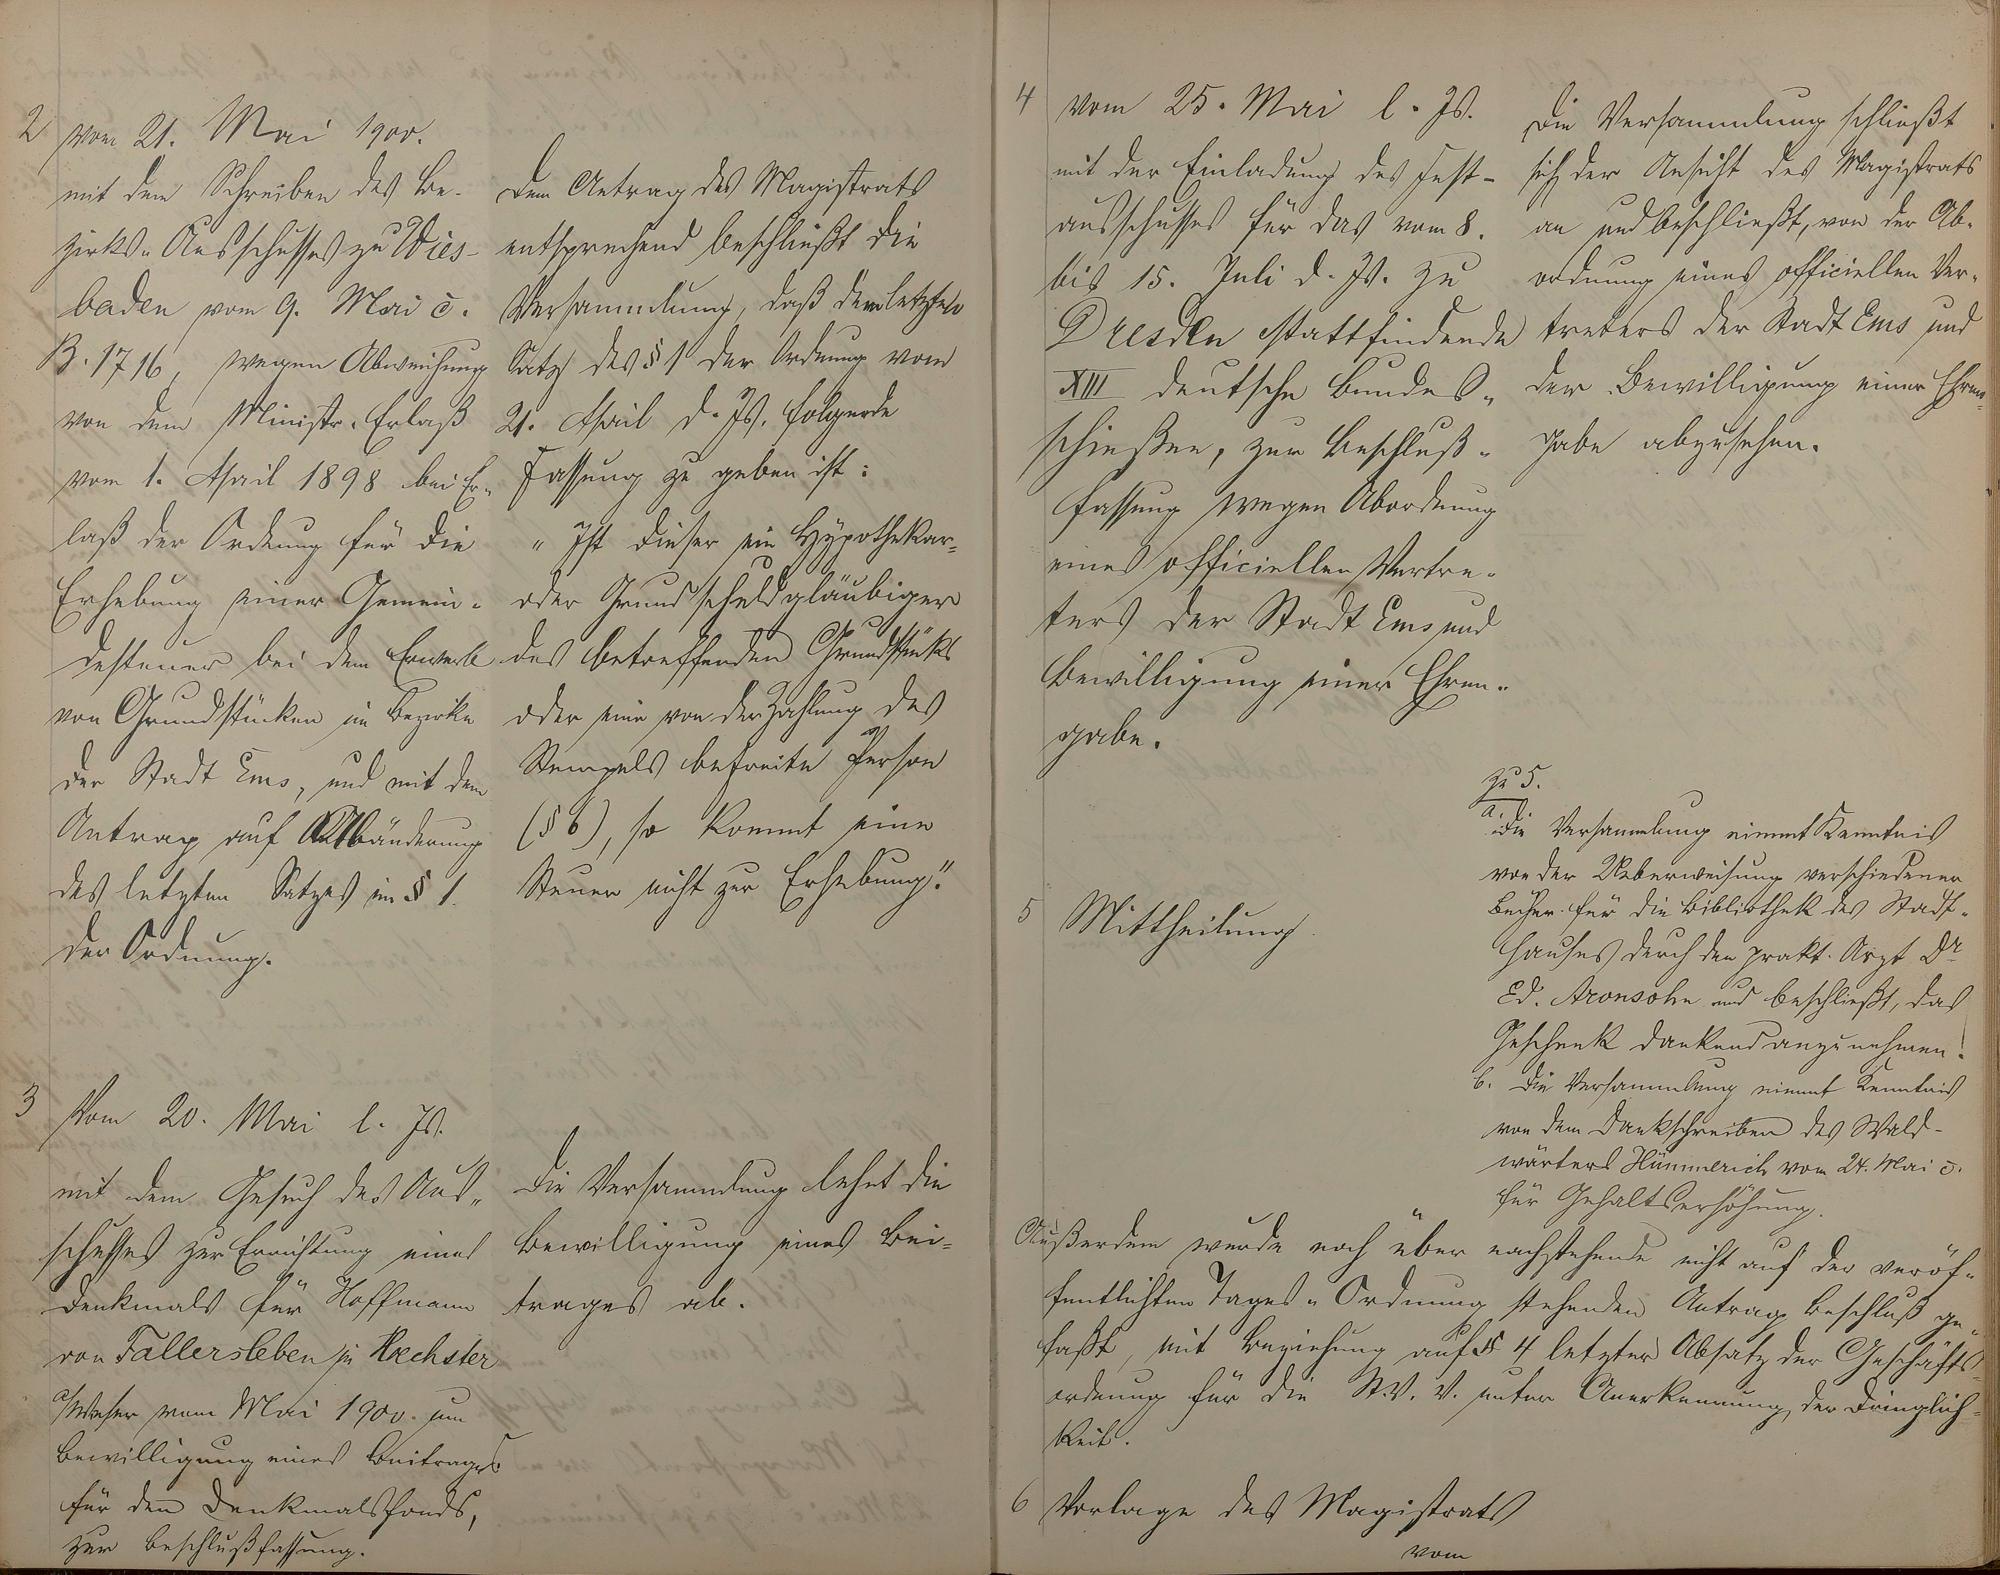 2 vom 21. Mai 1900.
mit dem Schreiben des Be-
zirks-Ausschusses zu Wies-
baden vom 9. Mai c.
B. 1716, wegen Abweichung
von dem Ministr. Erlaß
vom 1. April 1898 bei Er-
laß der Ordnung für die
Erhebung einer Gemein-
desteuer bei dem Erwerb
von Grundstücken im Bezirke
der Stadt Ems, und mit dem
Antrag auf Abänderung
des letzten Satzes im § 1.
der Ordnung.
Dem Antrag des Magistrats
entsprechend beschließt die
Versammlung, daß dem letzten
Satz des § 1 der Ordnung vom
21. April d. Js. folgende
Fassung zu geben ist:
„Ist dieser ein Hypothekar-
oder Grundschuldgläubiger
des betreffenden Grundstücks
oder eine von der Zahlung des
Stempels befreite Person
(§ 6), so kommt eine
Steuer nicht zur Erhebung."
3 Vom 20. Mai l. Js.
mit dem Gesuch des Aus-
schusses zur Errichtung eines
Denkmals für Hoffmann
von Fallersleben in Hoechster
a/Weser vom Mai 1900. um
Bewilligung eines Beitrages
für den Denkmalsfonds,
zur Beschlußfassung.
Die Versammlung lehnt die
Bewilligung eines Bei-
trages ab.
4 vom 25. Mai l. Js.
mit der Einladung des Fest-
ausschusses für das vom 8.
bis 15. Juli d. Js. zu
Dresden stattfindende
XIII deutsche Bundes-
schießen, zur Beschluß-
fassung wegen Abordnung
eines officiellen Vertre-
ters der Stadt Ems und
Bewilligung einer Ehren-
gabe.
Die Versammlung schließt
sich der Ansicht des Magistrats
an und beschließt, von der Ab-
ordnung eines officiellen Ver-
treters der Stadt Ems und
der Bewilligung einer Ehren-
gabe abzusehen.
5 Mittheilung.
zu 5.
a. Die Versammlung nimmt Kenntnis
von der Ueberweisung verschiedener
Bücher für die Bibliothek des Stadt-
hauses durch den prakt. Arzt Dr
Ed. Aronsohn und beschließt, das
Geschenk dankend anzunehmen.
b. Die Versammlung nimmt Kenntnis
von dem Dankschreiben des Wald-
wärters Hümmerich vom 24. Mai c.
für Gehaltserhöhung.
Außerdem wurde noch über nachstehende nicht auf der veröf-
fentlichten Tages-Ordnung stehenden Antrag Beschluß ge-
faßt, mit Beziehung auf § 4 letzter Absatz der Geschäfts-
ordnung für die St. V. V. unter Anerkennung der Dringlich-
keit.
6 Vorlage des Magistrats
vom